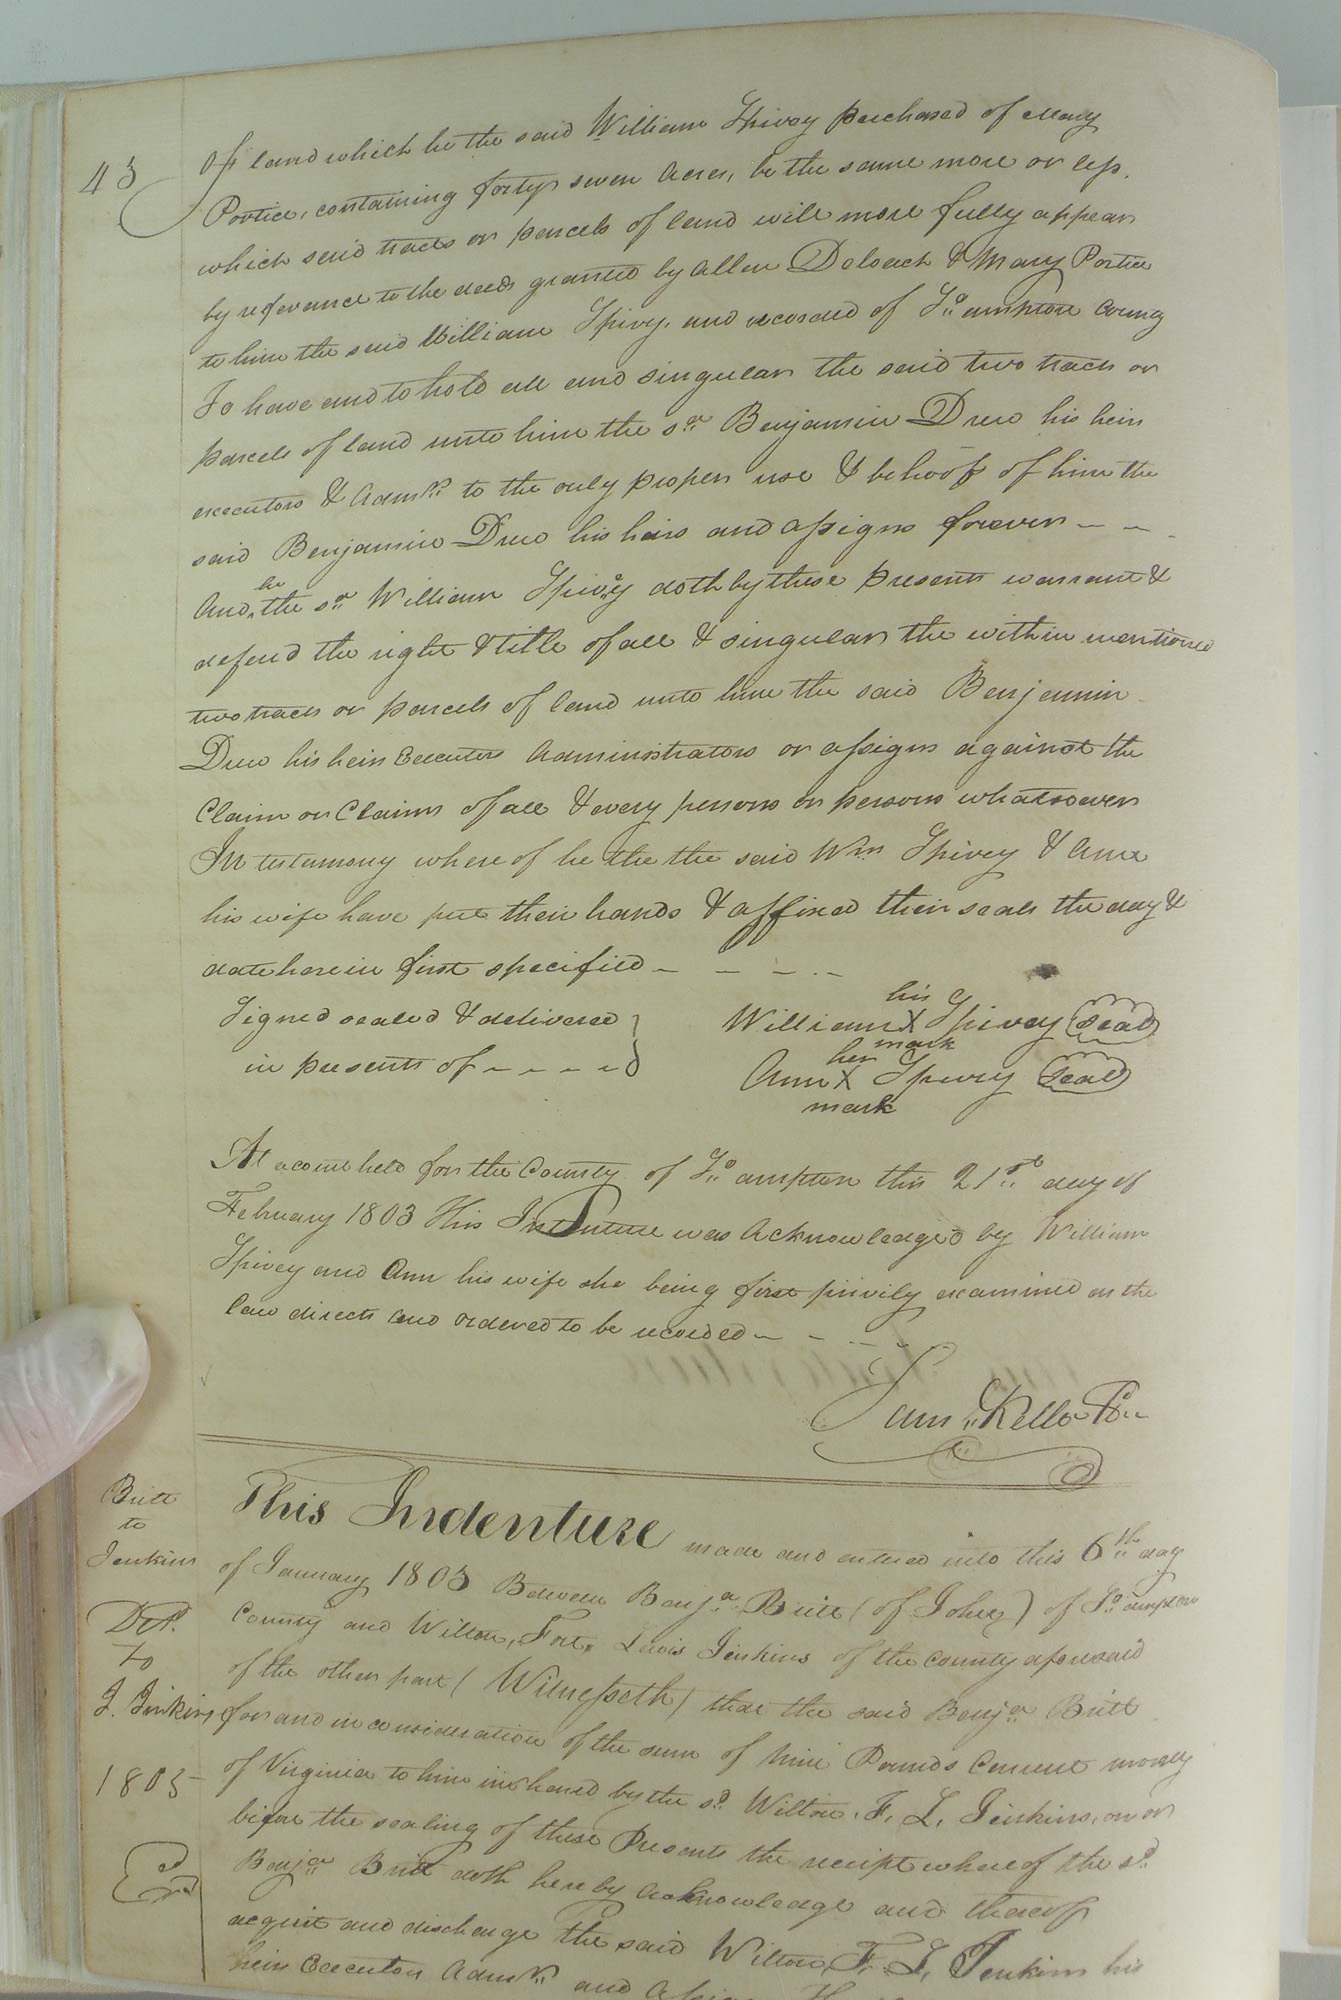 43
of land which he the said William Spivey purchased of Mary
Portice, containing forty seven Acres, be the same more or less.
which said tracts or parcels of land will more fully appear
by referance to the deeds granted by Allen Deloach & Mary Portice
to him the said William Spivy. and recorded of So. ampton County
To have and to hold all and singular the said two tracts or
parcels of land unto him the sd. Benjamin Drew his heirs
executors & Admrs. to the only proper use & behoof of him the
said Benjamin Drew his heirs and assigns forever - -
And, he the sd. William Spivey doth by these presents warrant &
defend the right & title of all & singular the within mentioned
two tracts or parcels of land unto him the said Benjamin
Drew his heirs Executors Administrators or assigns against the
Claim or Claims of all & every persons or persons whatsoever
In testamony where of he the the said Wm. Spivey & Ann
his wife have put their hands & affixed their seals the day &
date herein first specified - - - -
Signed sealed & delivered }
in presents of - - - - }
his
William X Spivey Seal
mark
her
Ann X Spivey Seal
mark
At a court held for the County of So. ampton this 21st. day of
February 1803 This Indenture was Acknowledged by William
Spivey and Ann his wife she being first privily examined as the
law directs and ordered to be recorded - - -
Sam. Kello
Britt
to
Jenkins
Dd.
To
J. Jenkins
1805
This Indenture made and entered into this 6th. day
of January 1803 Between Benja. Britt (of John) of So. ampton
County and Wilton, Fort, Lewis Jenkins of the County aforesaid
of the other part (Witnesseth) that the said Benja. Britt
for and in consideration of the sum of Nine Pounds Current money
of Virginia to him in hand by the sd. Wilton. F. L. Jenkins, on or
before the sealing of these Presents the receipt where of the sd.
Benja. Britt doth hereby acknowledge and thereof
acquit and discharge the said Wilton, F. L. Jenkins his
heirs Executors Admrs. and Assigns